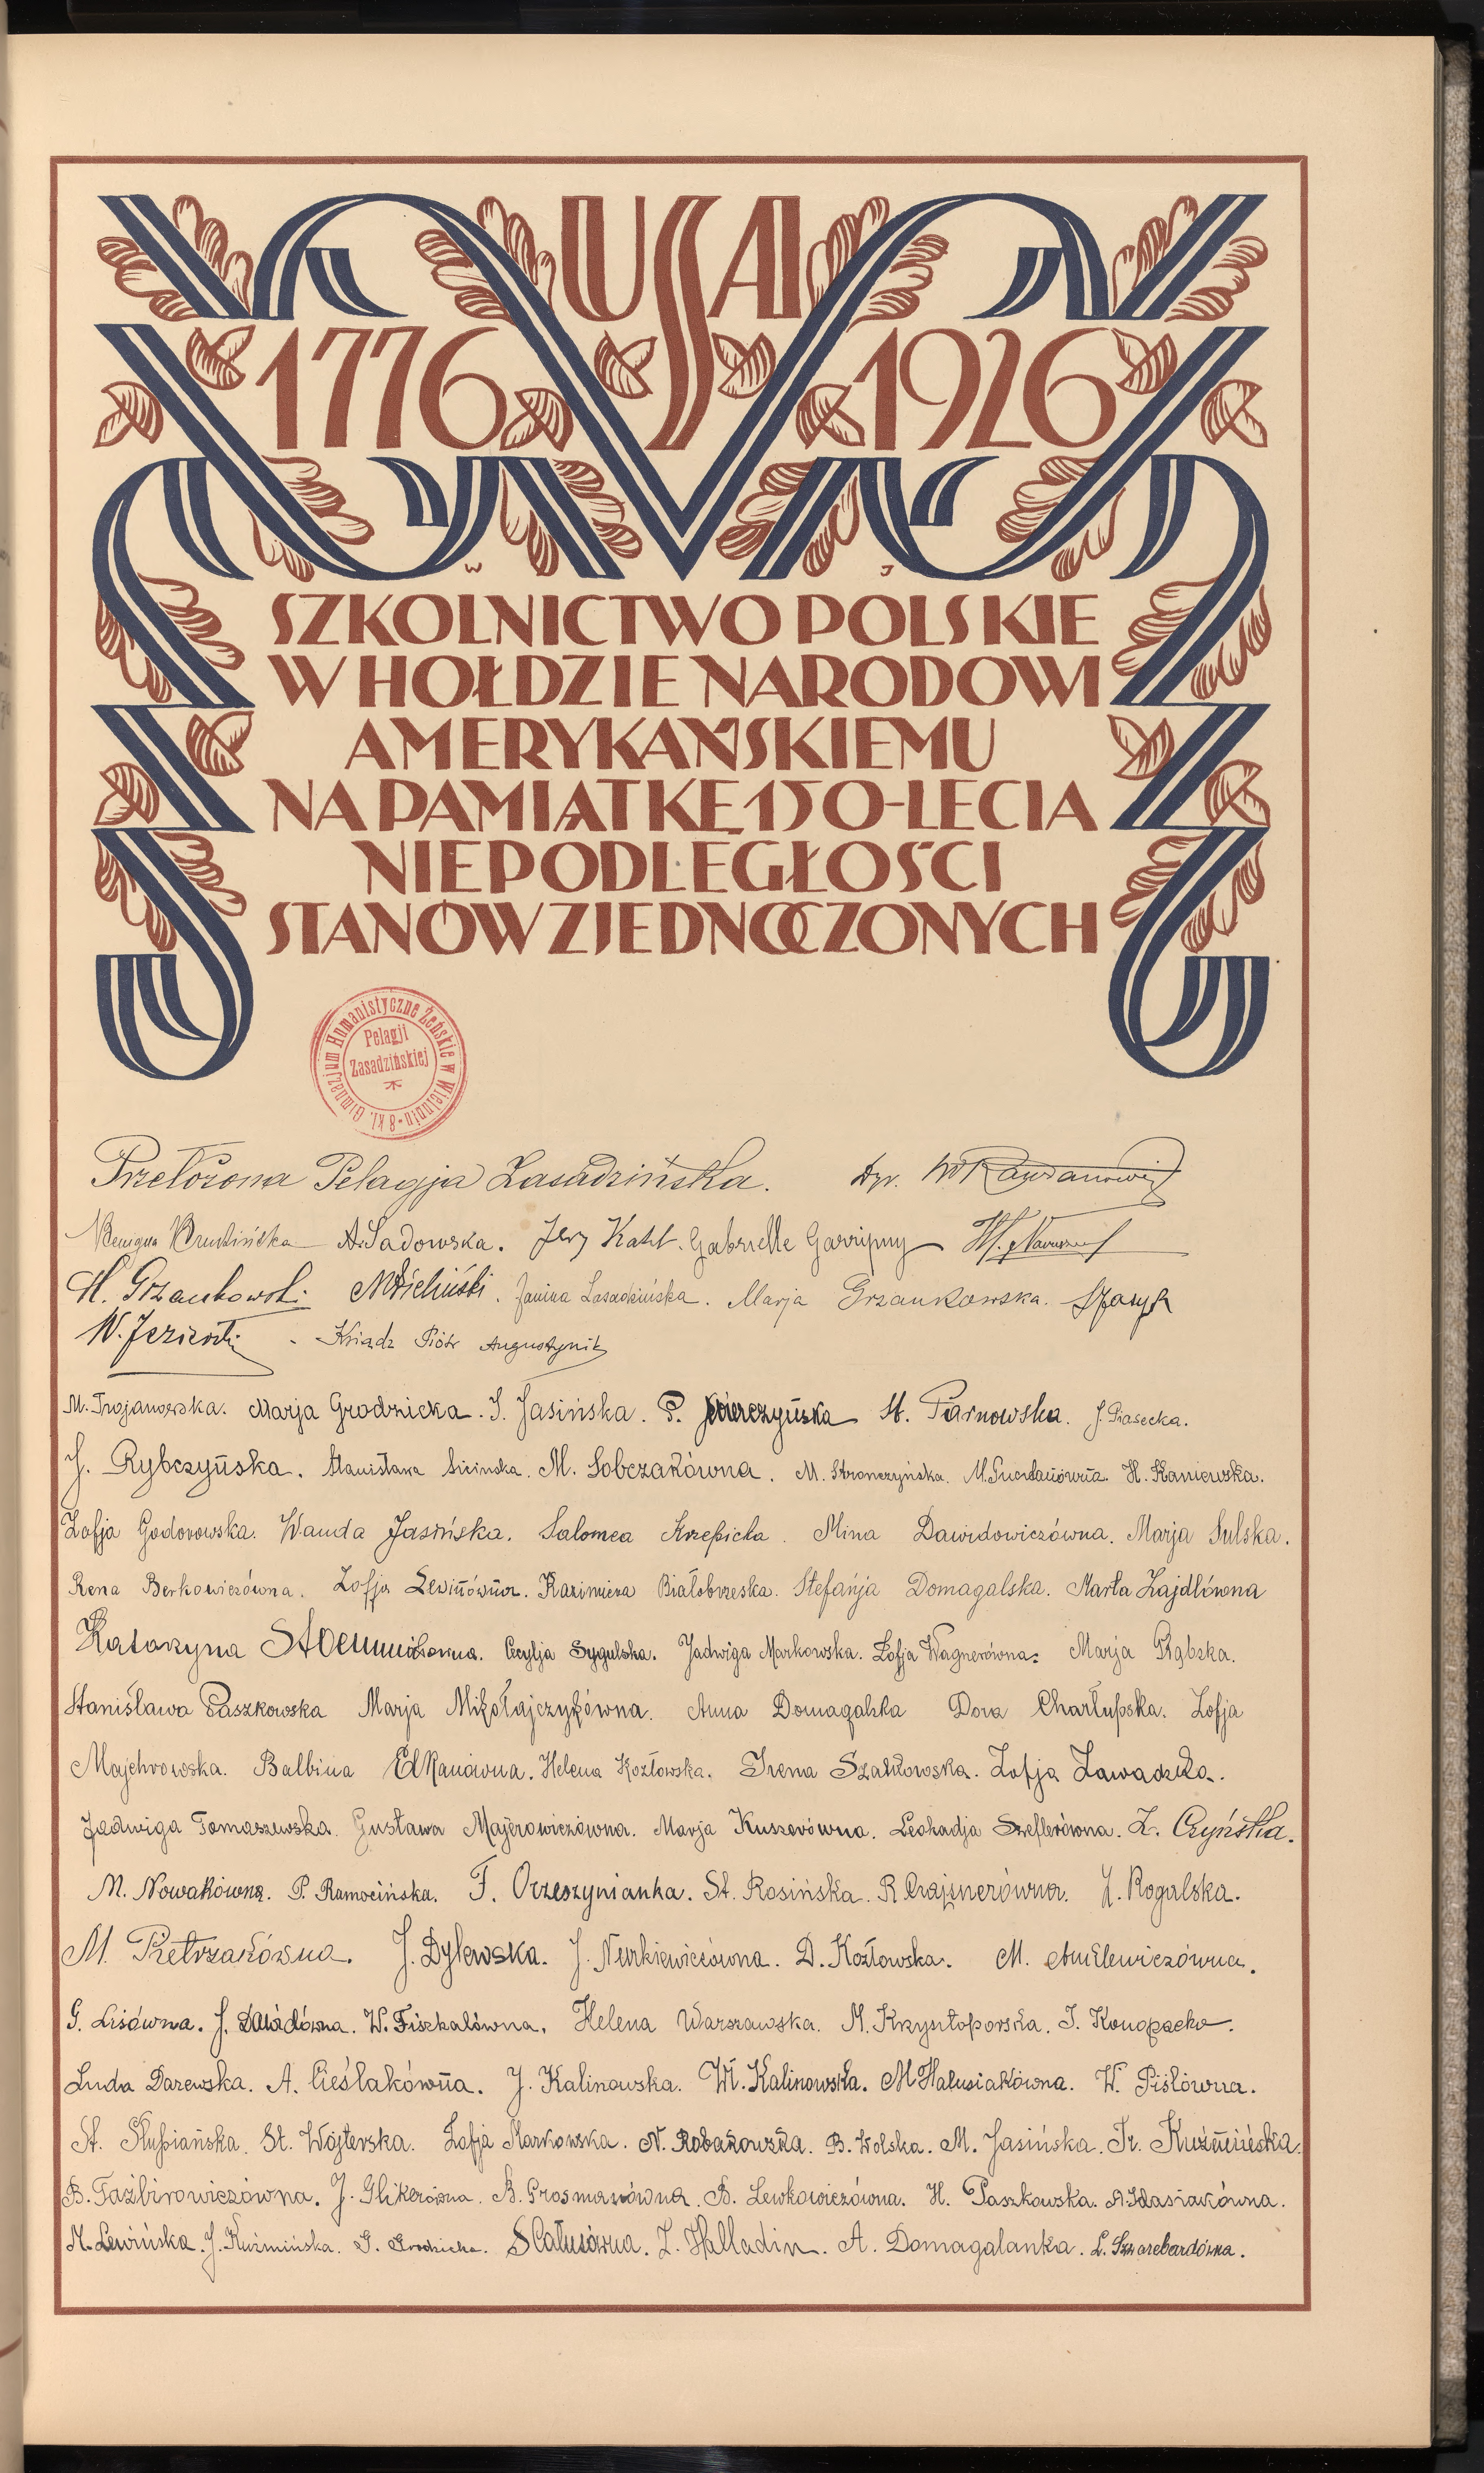 USA
1776 1926
W J
SZKOLNICTWO POLSKIE
W HOŁDZIE NARODOWI
AMERYKAŃSKIEMU
NA PAMIĄTKĘ 150-LECIA
NIEPODLEGŁOŚCI
STANÓW ZJEDNOCZONYCH
8 kl. Gimnazjum Humanistyczne Żeńskie w Wieluniu
Pelagji
Zasadzińskiej
Przełożona Pelagja Zasadzińska. Dyr.
A. Sadowska. Jerzy Gabrielle
H. Grzankowski Janina Zasadzińska. Marja Grzankowska.
W. Ksiądz Piótr Augustynik
M. Trojanowska. Marja Grodzicka. S. Jasińska. P. St. Tarnowska. J. Piasecka.
J. Rybczyńska. Stanisława Sicinska. M. Sobczakówna. M. Stronczyńska. H. Kaniewska.
Zofja Godorowska. Wanda Jasińska. Salomea Krzepicka. Mina Dawidowiczówna. Marja Sulska.
Rena Berkowiczówna. Zofja Lewinówna. Kazimiera Białobrzeska. Stefanja Domagalska. Marta Zajdlówna
Katarzyna Cecylja Sygulska. Jadwiga Markowska. Zofja Wagnerówna. Marja Grąbska.
Stanisława Paszkowska Marja Mikołajczykówna. Anna Domagalska Dora Charłupska. Zofja
Majchrowska. Balbina Elkanówna. Helena Kozłowska. Irena Szatkowska. Zofja Zawadzka.
Jadwiga Tomaszewska. Gustawa Majerowiczówna. Marja Kusserówna. Leokadja Szeflerówna. Z. Czyńska.
M. Nowakówna. P. Ramocińska. F. Orzeszynianka. St. Rosińska. R. Crajsnerówna. J. Rogalska.
M. Pietrzakówna. J. Dylewska. J. Nurkiewiczówna. D. Kozłowska. M.
G. Lisówna. J. Dawidówna. W. Fiszkalówna. Helena Warszawska. M. Krzysztoporska. J. Konopacka.
Luda Darewska. A. Cieślakówna. J. Kalinowska. Wł. Kalinowska. M Hałusiakówna. W. Piślówna.
St. Słupiańska. St. Wojterska. Zofja Markowska. N. Robakowska. B. Wolska. M. Jasińska. Ir. Kuźmińska.
B. Taźbirowiczówna. J. Glikerówna. B. Grosmanówna. B. Lewkowiczówna. H. Paszkowska.
M. Lewińska. J. Kuźmińska. G. Grodzicka. S Całusówna. Z. Halladin. A. Domagalanka. L. Szwarcbardówna.